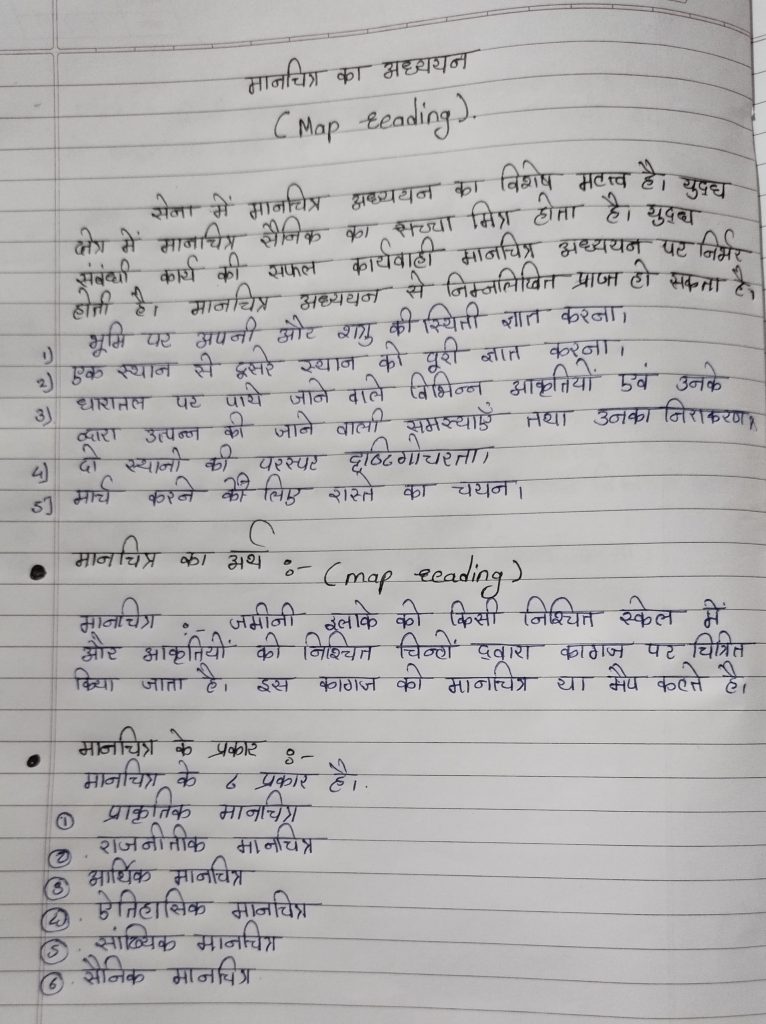 मानचित्र का अध्ययन
(Map reading).
सेना में मानचित्र अध्ययन का विशेष महत्त्व है। युद्ध
क्षेत्र में मानचित्र सैनिक का सच्चा मित्र होता है। युद्ध
संबंधी कार्य की सफल कार्यवाही मानचित्र अध्ययन पर निर्भर
होती है। मानचित्र अध्ययन से निम्नलिखित प्राप्त हो सकता है,
1) भूमि पर अपनी और शत्रु की स्थिती ज्ञात करना।
2) एक स्थान से दूसरे स्थान को दूरी ज्ञात करना।
3) धारातल पर पाये जाने वाले विभिन्न आकृतियों एवं उनके
द्वारा उत्पन्न की जाने वाली समस्याएँ तथा उनका निराकरण,
4) दो स्थानो की परस्पर दृष्टिगोचरता।
5) मार्च करने के लिए रास्ते का चयन।
• मानचित्र का अर्थ :- (map reading)
मानचित्र :- जमीनी इलाके को किसी निश्चित स्केल में
और आकृतियों को निश्चित चिन्हों द्वारा कागज पर चित्रित
किया जाता है। इस कागज को मानचित्र या मैप कहते है।
• मानचित्र के प्रकार :-
मानचित्र के ६ प्रकार है।.
① प्राकृतिक मानचित्र
② राजनीतीक मानचित्र
③ आर्थिक मानचित्र
④. ऐतिहासिक मानचित्र
⑤. सांख्यिक मानचित्र
⑥. सैनिक मानचित्र.